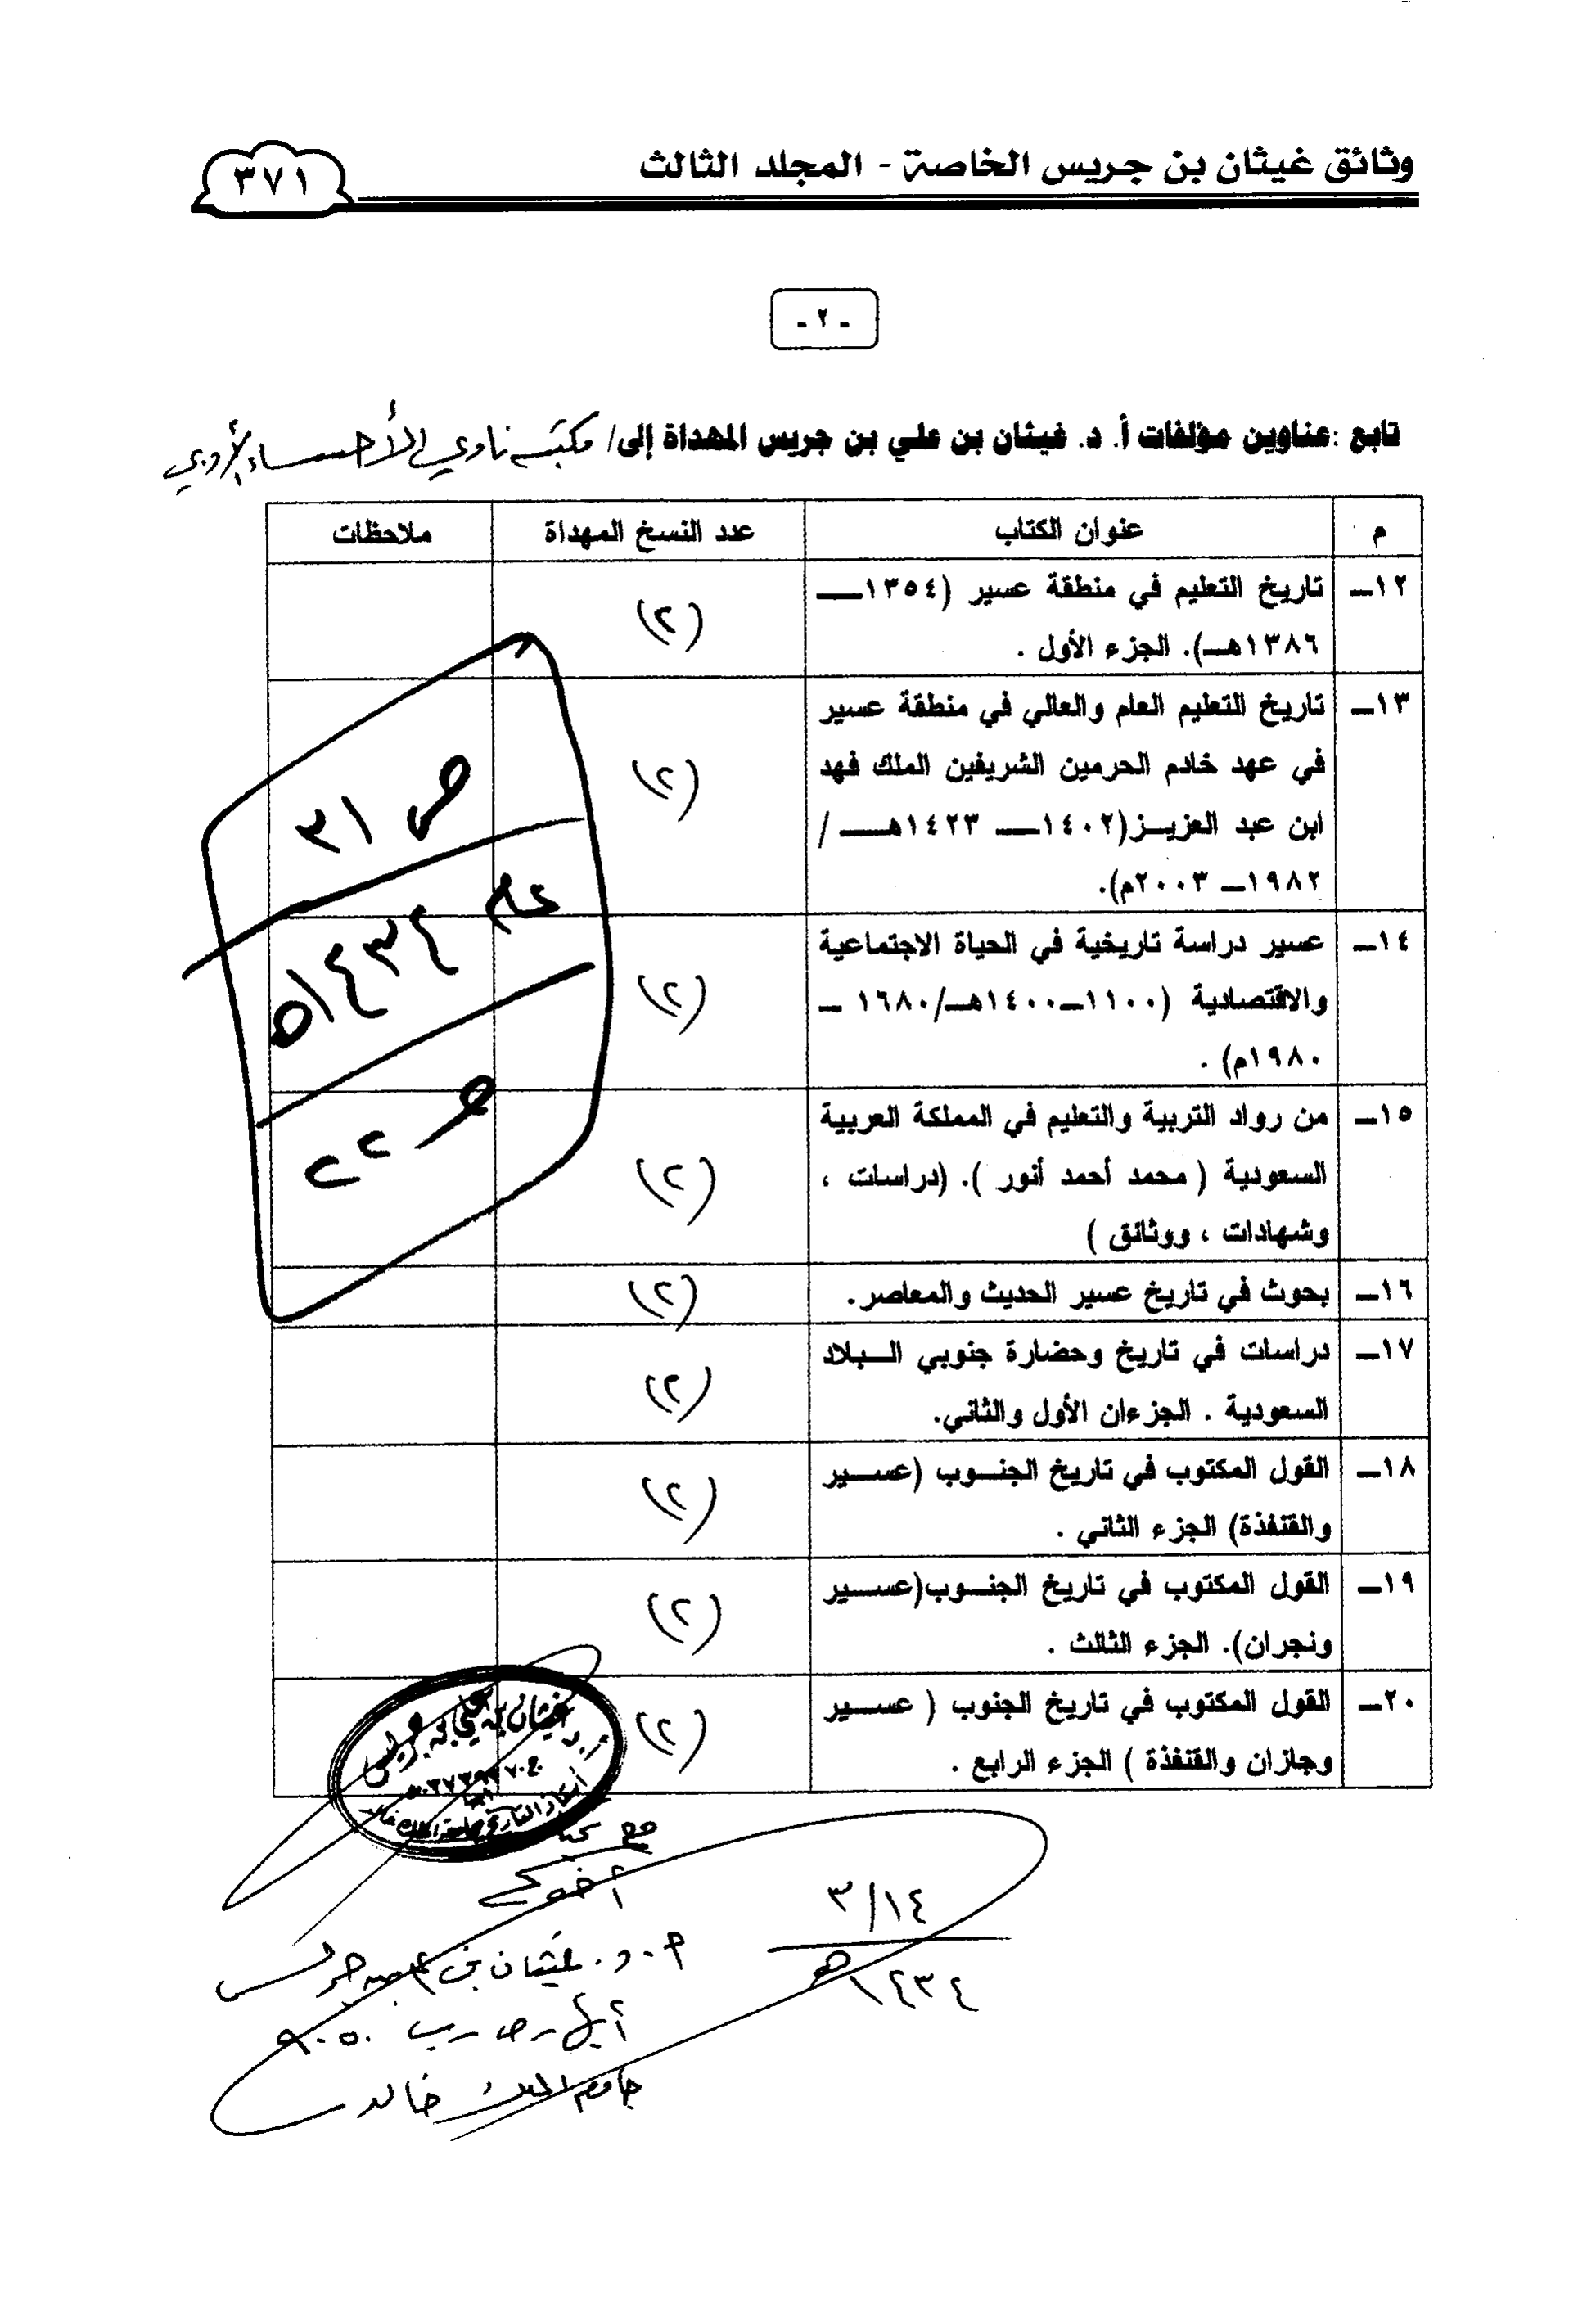 وثائق غيثان بن جريس الخاصة - المجلد الثالث
٣٧١
- ٢ -
تابع :عناوين مؤلفات أ. د. غيثان بن علي بن جريس المهداة إلى/ مكتبة نادي الأحساء الأدبي
م عنوان الكتاب عدد النسخ المهداة ملاحظات
١٢ــ تاريخ التعليم في منطقة عسير (١٣٥٤ــ
١٣٨٦هـ). الجزء الأول .
(٢)
١٣ــ تاريخ التعليم العام والعالي في منطقة عسير
في عهد خادم الحرمين الشريفين الملك فهد
ابن عبد العزيـز(١٤٠٢ــ ١٤٢٣هـــ /
١٩٨٢ــ ٢٠٠٣م).
(٢)
١٤ــ عسير دراسة تاريخية في الحياة الاجتماعية
والاقتصادية (١١٠٠ــ١٤٠٠هـ/١٦٨٠ ــ
١٩٨٠م) .
(٢)
١٥ــ من رواد التربية والتعليم في المملكة العربية
السعودية ( محمد أحمد أنور ). (دراسات ،
وشهادات ، ووثائق )
(٢)
١٦ــ بحوث في تاريخ عسير الحديث والمعاصر.
(٢)
١٧ــ دراسات في تاريخ وحضارة جنوبي الـبلاد
السعودية . الجزءان الأول والثاني.
(٢)
١٨ــ القول المكتوب في تاريخ الجنـوب (عسـير
والقنفذة) الجزء الثاني .
(٢)
١٩ــ القول المكتوب في تاريخ الجنـوب(عسـير
ونجران). الجزء الثالث .
(٢)
٢٠ــ القول المكتوب في تاريخ الجنوب ( عسـير
وجازان والقنفذة ) الجزء الرابع .
(٢)
ص ٣١
عام ١٤٣٤هـ
ص ٢٢
أ.د. غيثان بن علي بن جريس
أبها
أستاذ التاريخ بجامعة الملك خالد
مع
أخوكم
أ.د. غيثان بن علي بن جريس
أبها ص.ب ٩٠٥٠
جامعة الملك خالد
٣/١٤
١٤٣٤هـ